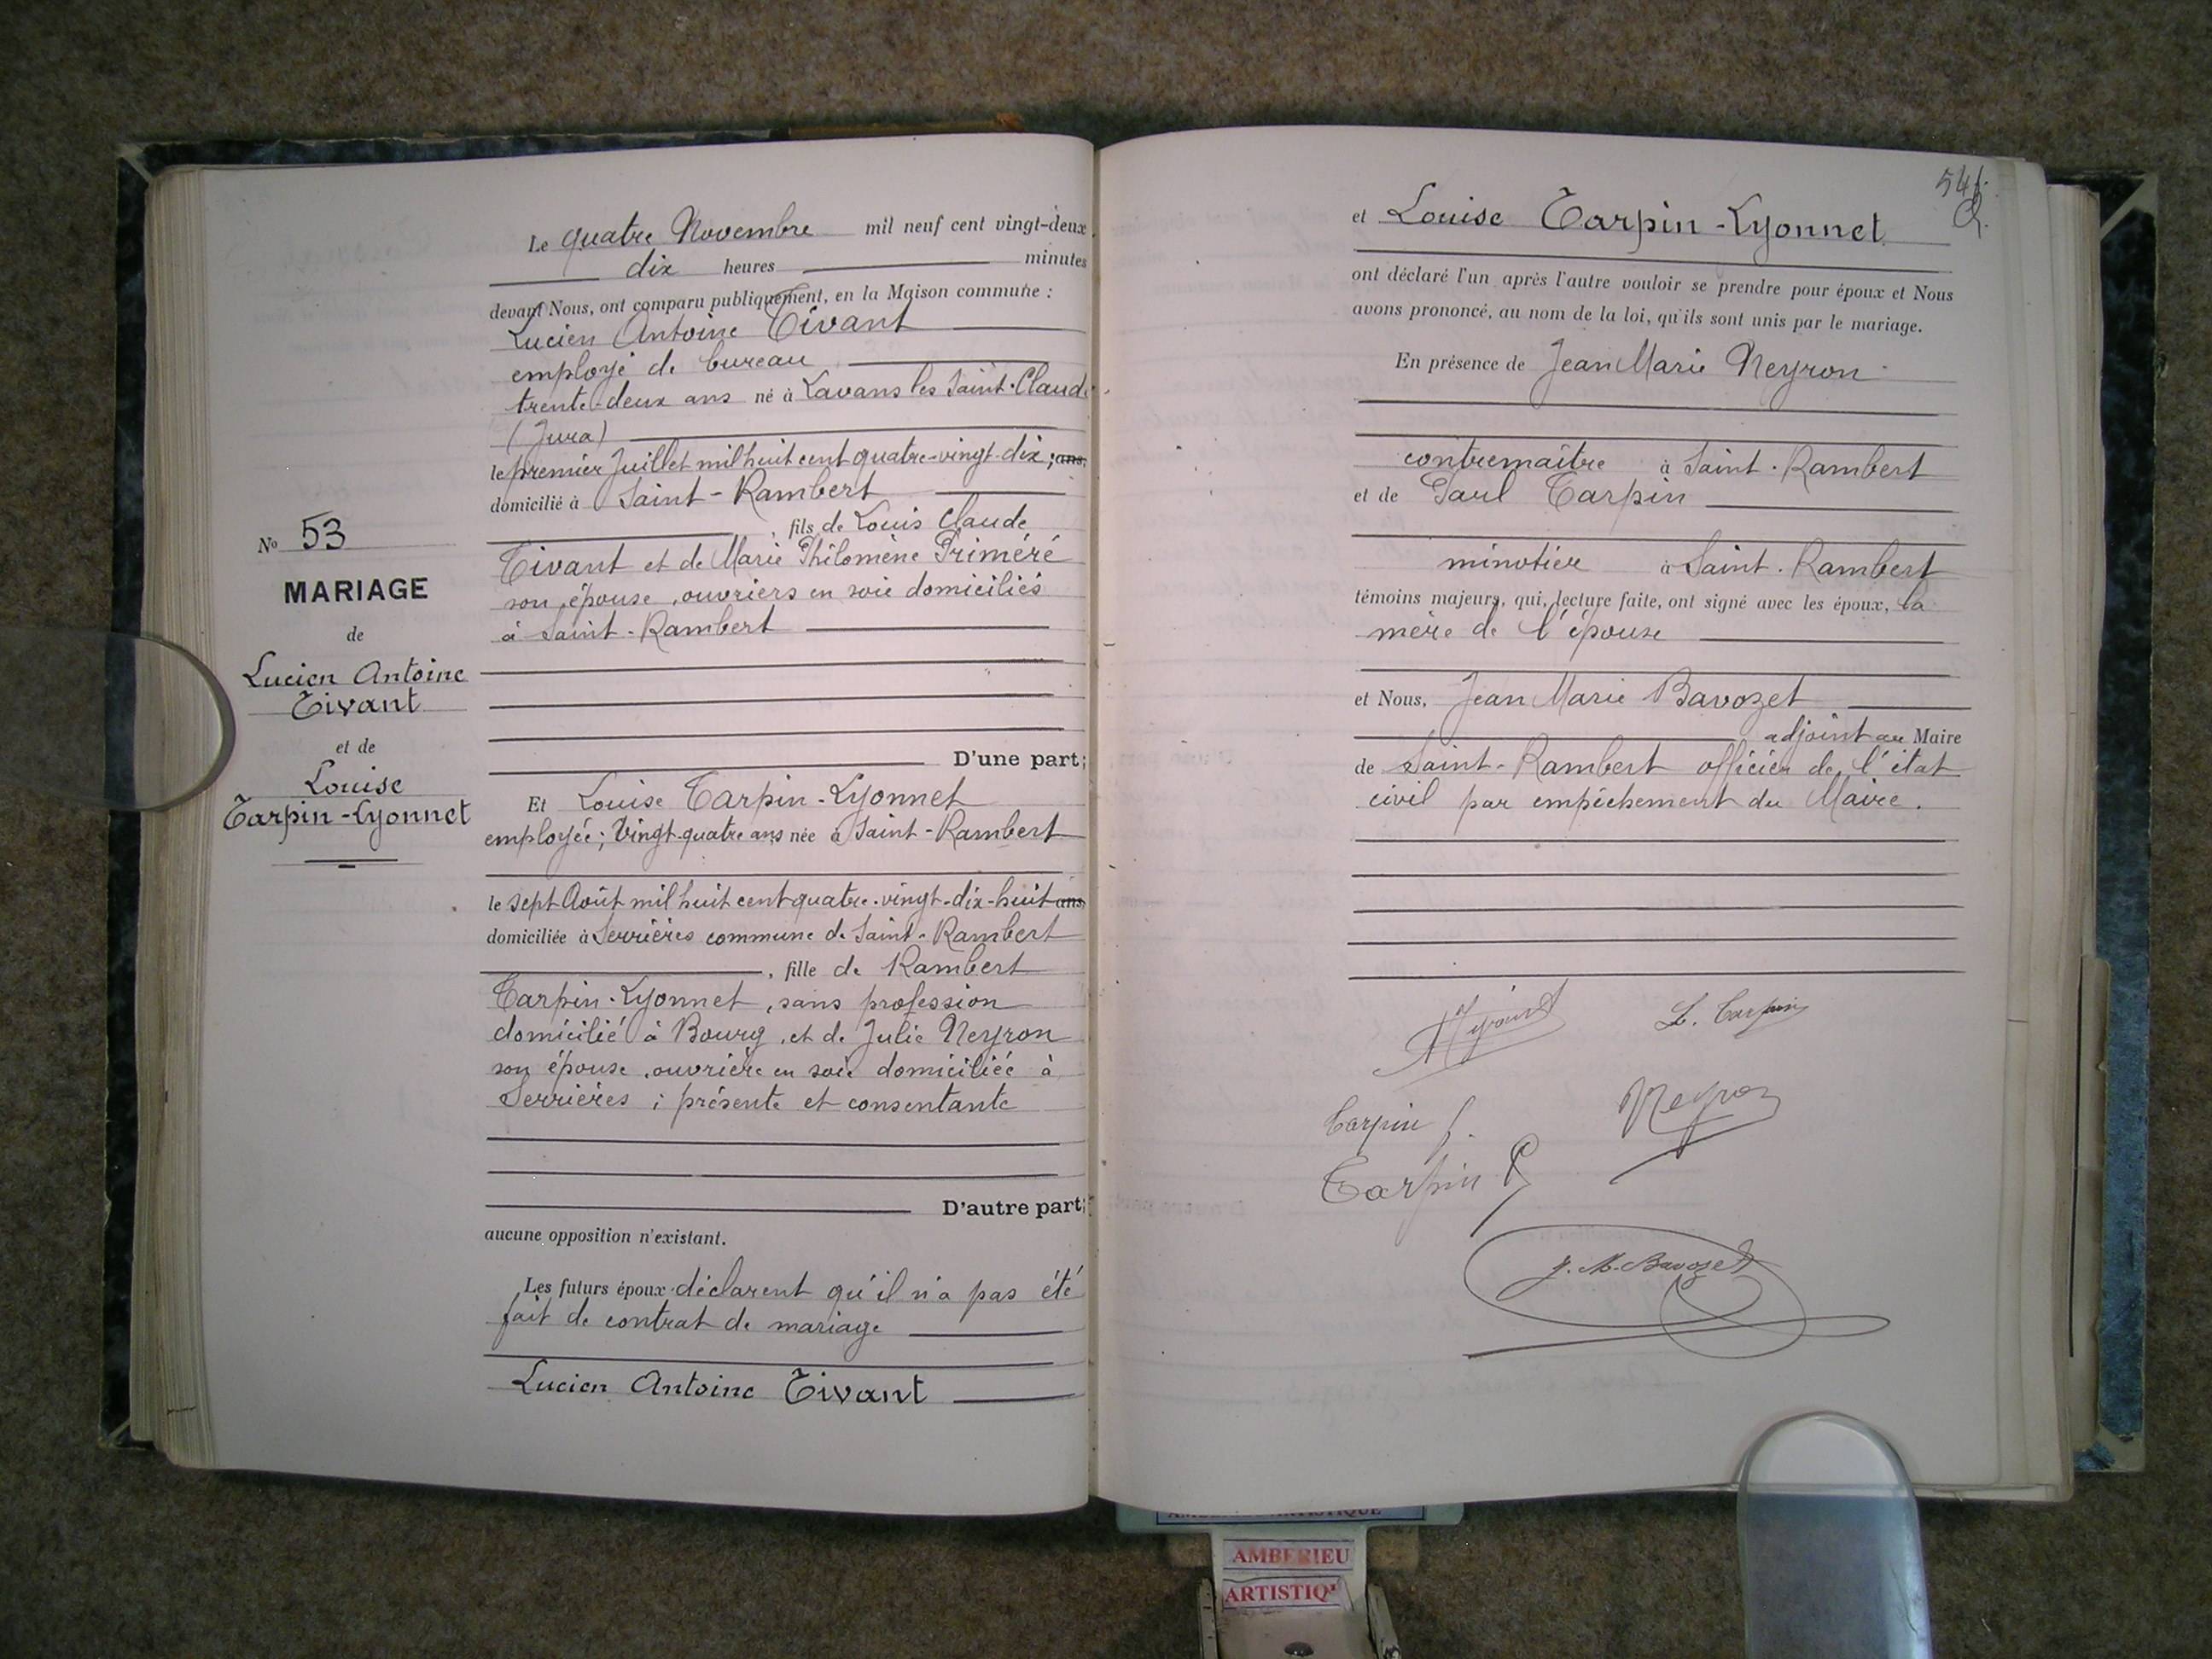 Le quatre Novembre mil neuf cent vingt-deux
dix heures minutes
devant Nous, ont comparu publiquement, en la Maison commune :
Lucien Antoine Tivant
employé de bureau
trente-deux ans né à Lavans les Saint-Claude
(Jura)
le premier Juillet mil huit cent quatre-vingt-dix ; ans,
domicilié à Saint-Rambert
, fils de Louis Claude
Tivant et de Marie Philomène Priméré
son épouse, ouvriers en soie domiciliés
à Saint-Rambert
No 53
MARIAGE
de
Lucien Antoine
Tivant
et de
Louise
Tarpin-Lyonnet
D'une part;
Et Louise Tarpin-Lyonnet
employée ; Vingt-quatre ans née à Saint-Rambert
le sept Août mil huit cent quatre-vingt-dix-huit ans,
domiciliée à Serrières commune de Saint-Rambert
, fille de Rambert
Tarpin-Lyonnet, sans profession
domicilié à Bourg, et de Julie Neyron
son épouse, ouvrière en soie domiciliée à
Serrières ; présente et consentante
D'autre part;
aucune opposition n'existant.
Les futurs époux déclarent qu'il n'a pas été
fait de contrat de mariage
Lucien Antoine Tivant
54
et Louise Tarpin-Lyonnet
ont déclaré l'un après l'autre vouloir se prendre pour époux et Nous
avons prononcé, au nom de la loi, qu'ils sont unis par le mariage.
En présence de Jean Marie Neyron
contremaître à Saint-Rambert
et de Paul Tarpin
minotier à Saint-Rambert
témoins majeurs, qui, lecture faite, ont signé avec les époux, la
mère de l'épouse
et Nous, Jean Marie Bavozet
adjoint au Maire
de Saint-Rambert officier de l'état
civil par empêchement du Maire.
L. Tarpin
Tarpin J.
Neyron
Tarpin P
J. M. Bavozet
AMBERIEU
ARTISTIQ